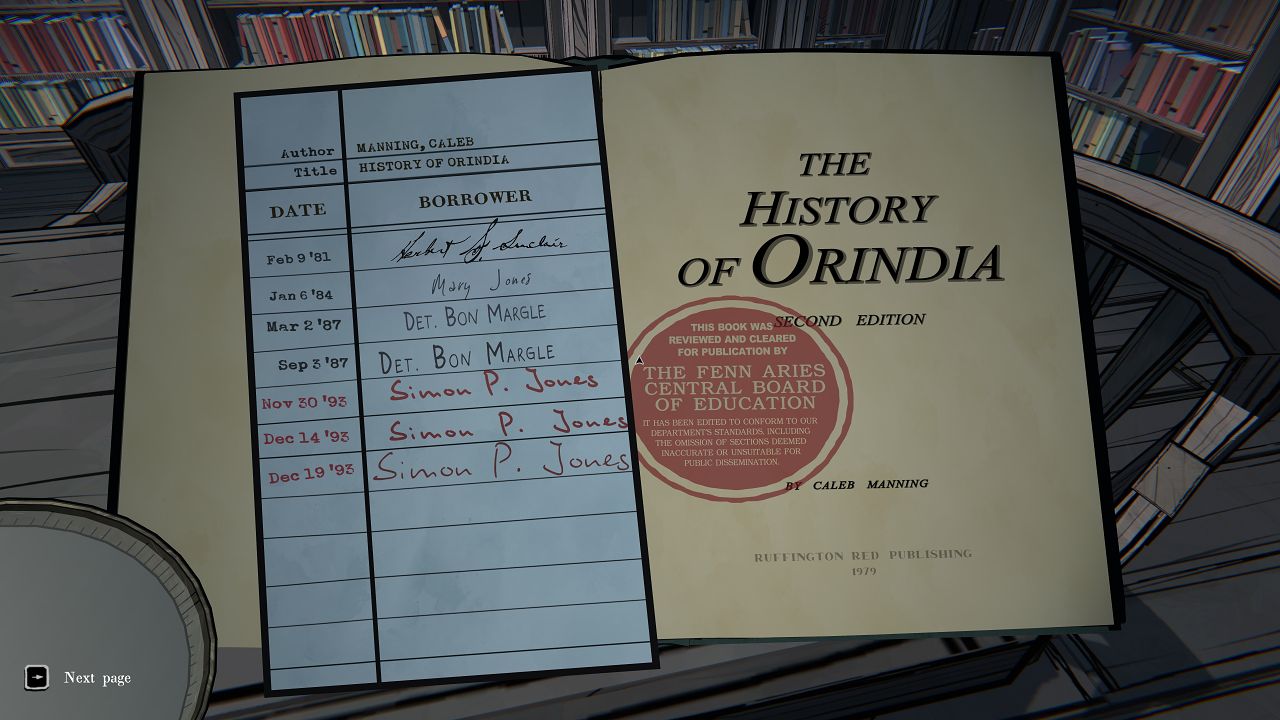 Author MANNING, CALEB
Title HISTORY OF ORINDIA
DATE BORROWER
Feb 9 '81 Herbert S. Sinclair
Jan 6 '84 Mary Jones
Mar 2 '87 DET. BON MARGLE
Sep 3 '87 DET. BON MARGLE
Nov 30 '93 Simon P. Jones
Dec 14 '93 Simon P. Jones
Dec 19 '93 Simon P. Jones
THE
HISTORY
OF ORINDIA
SECOND EDITION
THIS BOOK WAS
REVIEWED AND CLEARED
FOR PUBLICATION BY
THE FENN ARIES
CENTRAL BOARD
OF EDUCATION
IT HAS BEEN EDITED TO CONFORM TO OUR
DEPARTMENT'S STANDARDS, INCLUDING
THE OMISSION OF SECTIONS DEEMED
INACCURATE OR UNSUITABLE FOR
PUBLIC DISSEMINATION.
BY CALEB MANNING
RUFFINGTON RED PUBLISHING
1979
Next page